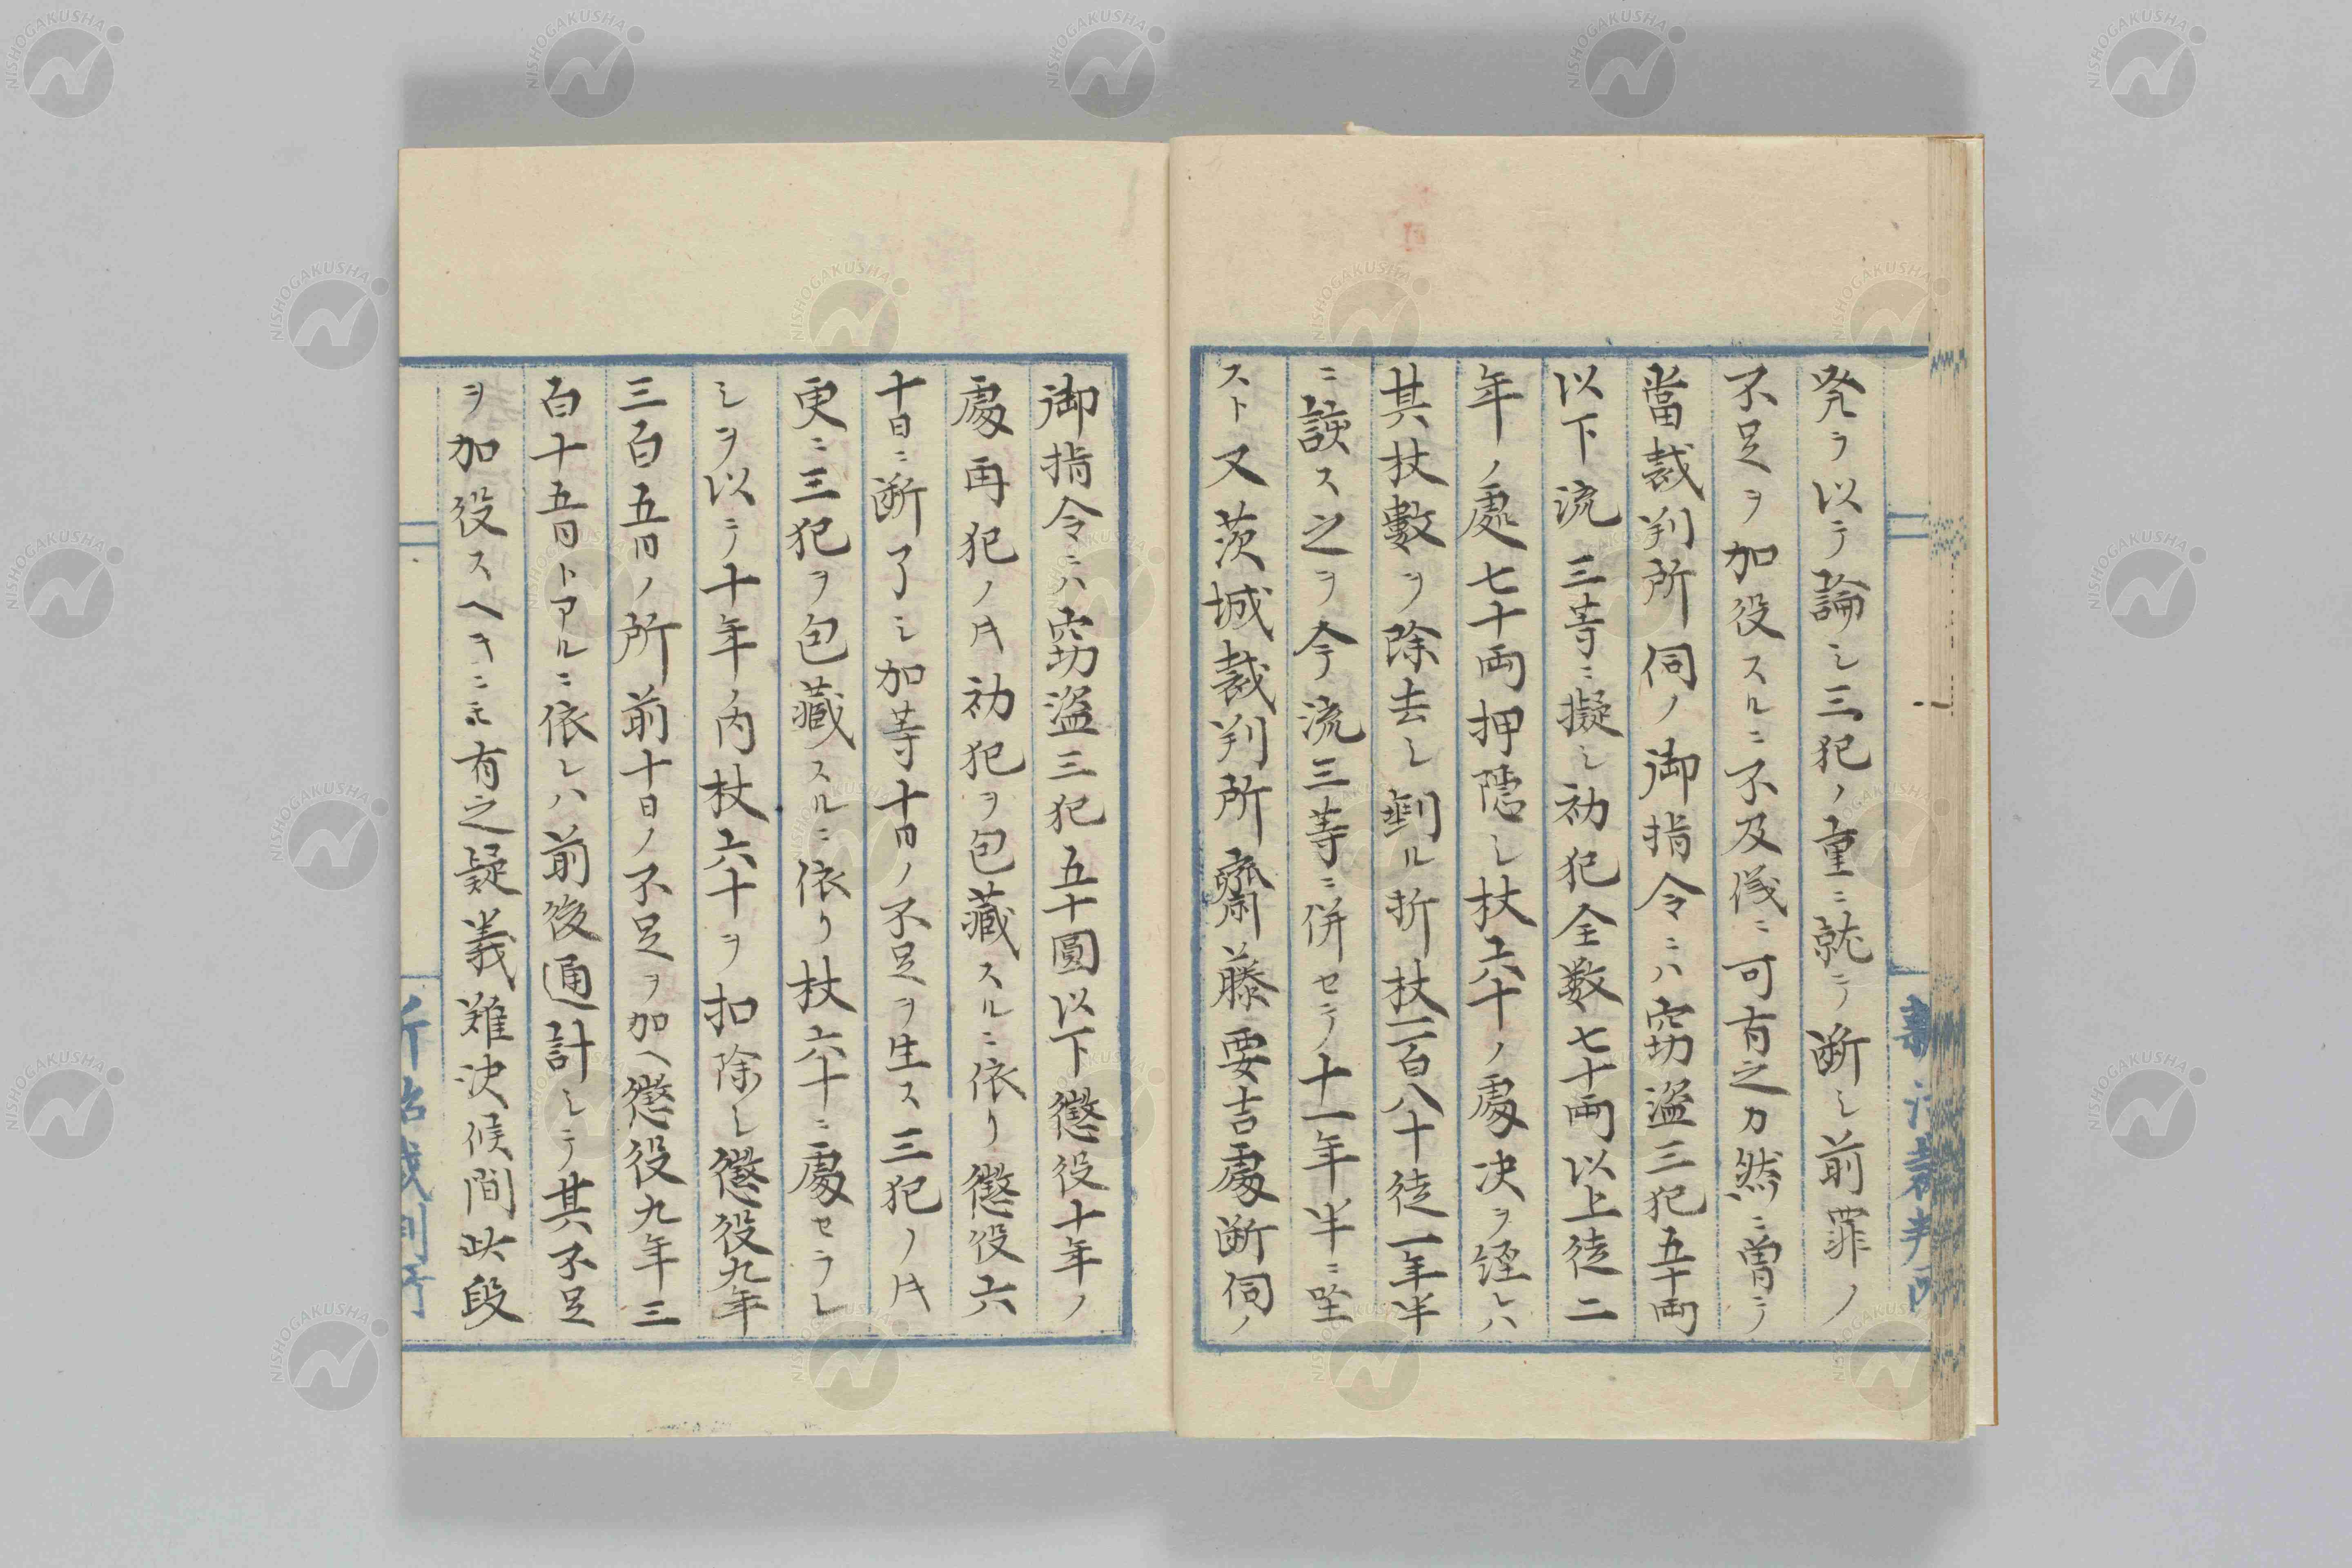 発ヲ以テ論シ三犯ノ重ニ就テ断シ前罪ノ
不足ヲ加役スルニ不及儀ニ可有之カ然ニ曽テ
當裁判所伺ノ御指令ニハ窃盗三犯五十両
以下流三等ニ擬シ初犯全数七十両以上徒二
年ノ處七十両押隠シ杖六十ノ處决ヲ経レハ
其杖數ヲ除去シ剩ル折杖一百八十徒一年半
ニ該ス之ヲ今流三等ニ併セテ十一年半ニ坐
スト又茨城裁判所齋藤要吉處断伺ノ
御指令ニハ窃盗三犯五十圓以下懲役十年ノ
處再犯ノ片初犯ヲ包藏スルニ依リ懲役六
十日ニ断了シ加等十日ノ不足ヲ生ス三犯ノ片
更ニ三犯ヲ包藏スルニ依リ杖六十ニ處セラレ
シヲ以テ十年ノ内杖六十ヲ扣除シ懲役九年
三百五日ノ所前十日ノ不足ヲ加ヘ懲役九年三
百十五日トアルニ依レハ前後通計シテ其不足
ヲ加役スヘキニ示有之疑義難决候間此段
NISHOGAKUSHA